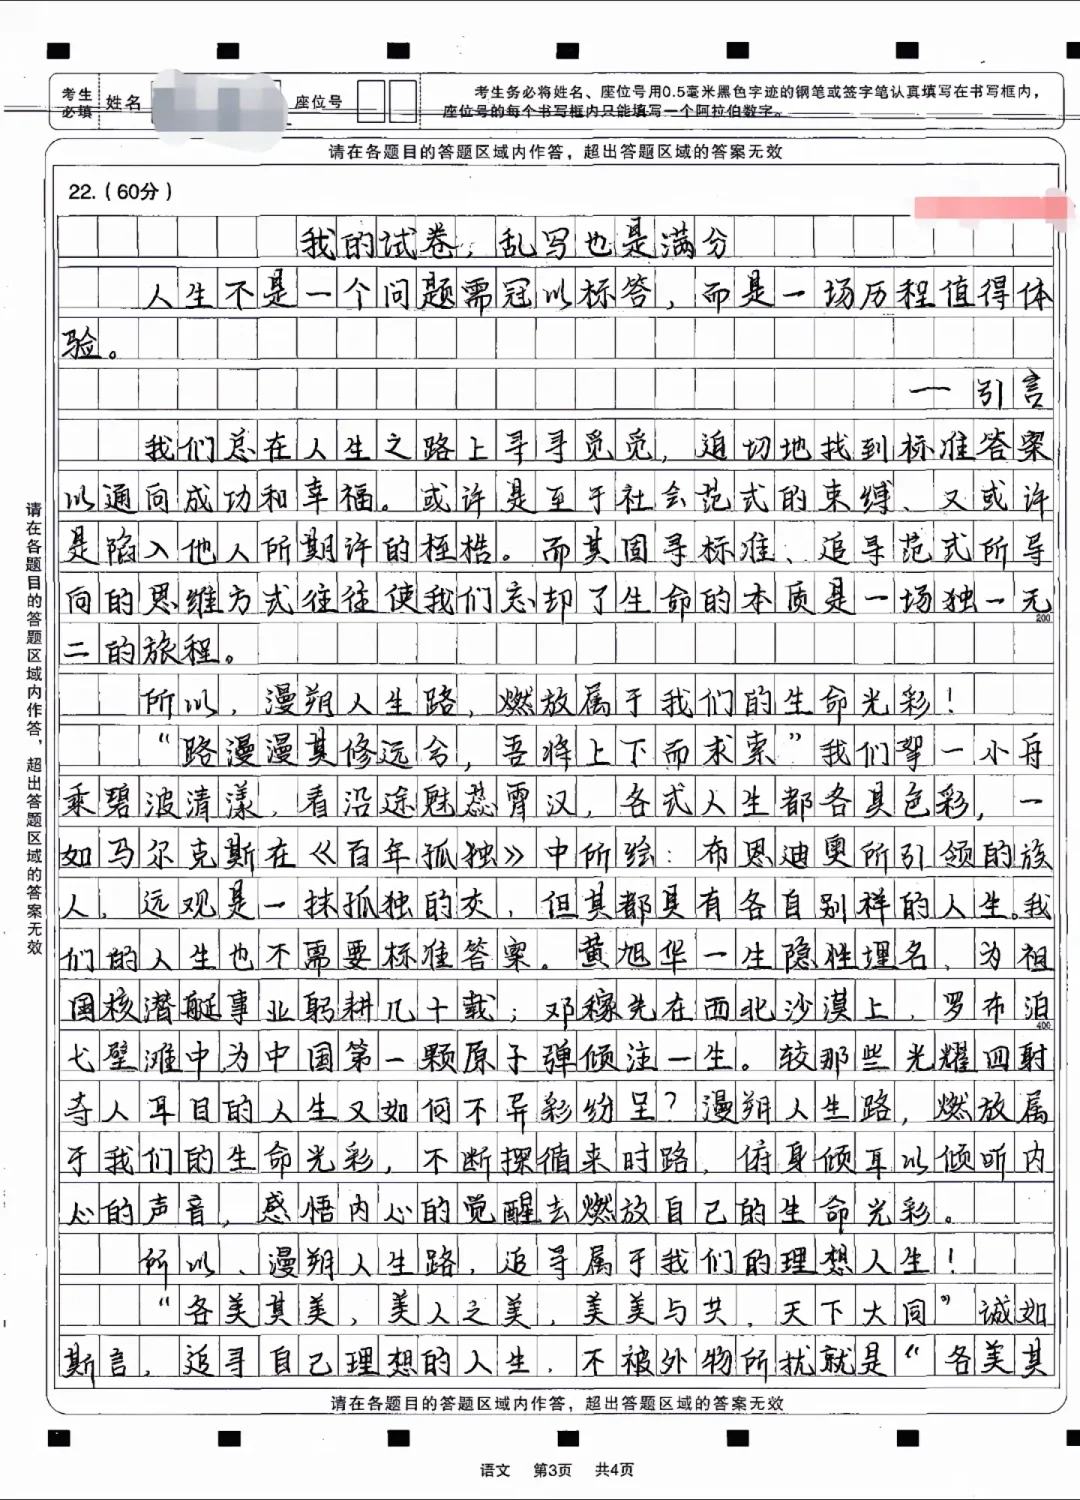 考生必填 姓名 座位号 考生务必将姓名、座位号用0.5毫米黑色字迹的钢笔或签字笔认真填写在书写框内，
座位号的每个书写框内只能填写一个阿拉伯数字。
请在各题目的答题区域内作答，超出答题区域的答案无效
22.（60分）
我的试卷，乱写也是满分
人生不是一个问题需冠以标答，而是一场历程值得体
验。
——引言
我们总在人生之路上寻寻觅觅，迫切地找到标准答案
以通向成功和幸福。或许是至于社会范式的束缚、又或许
是陷入他人所期许的桎梏。而其固寻标准、追寻范式所导
向的思维方式往往使我们忘却了生命的本质是一场独一无
200
二的旅程。
所以，漫朔人生路，燃放属于我们的生命光彩！
“路漫漫其修远兮，吾将上下而求索”我们挐一小舟
乘碧波清漾，看沿途魅蕊霄汉，各式人生都各具色彩，一
如马尔克斯在《百年孤独》中所绘：布恩迪奥所引领的族
人，远观是一抹孤独的灰，但其都具有各自别样的人生。我
们的人生也不需要标准答案。黄旭华一生隐姓埋名，为祖
国核潜艇事业躬耕几十载；邓稼先在西北沙漠上，罗布泊
400
弋壁滩中为中国第一颗原子弹倾注一生。较那些光耀四射
夺人耳目的人生又如何不异彩纷呈？漫朔人生路，燃放属
于我们的生命光彩，不断探循来时路，俯身倾耳以倾听内
心的声音，感悟内心的觉醒去燃放自己的生命光彩。
所以、漫朔人生路，追寻属于我们的理想人生！
“各美其美，美人之美，美美与共，天下大同”诚如
斯言，追寻自己理想的人生，不被外物所扰就是“各美其
请在各题目的答题区域内作答，超出答题区域的答案无效
请在各题目的答题区域内作答，超出答题区域的答案无效
语文 第3页 共4页